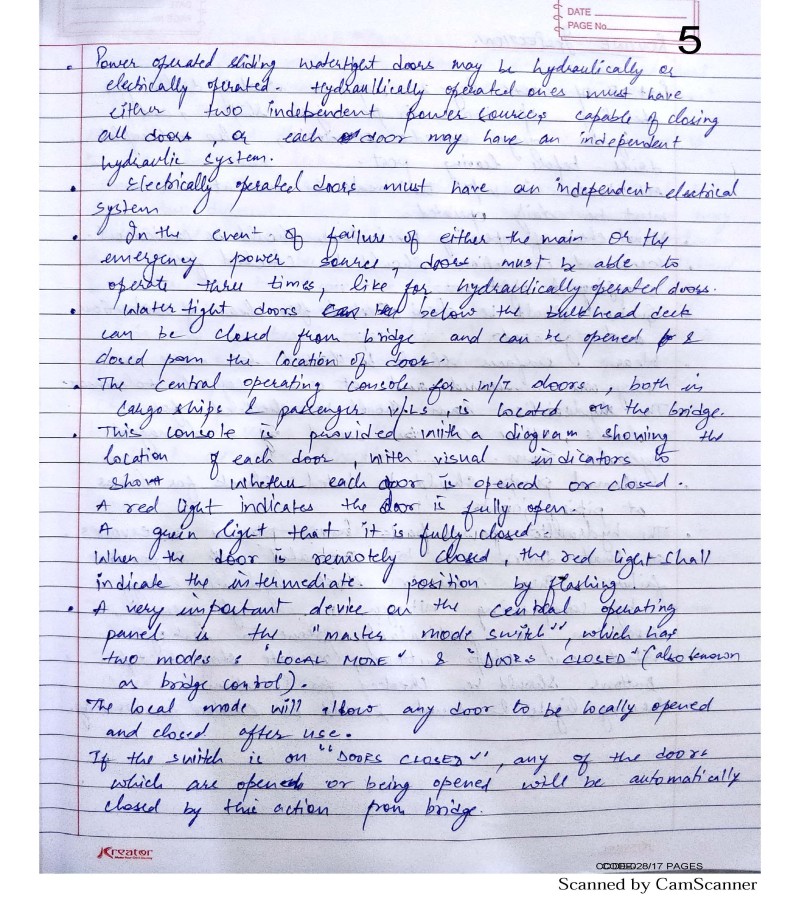 DATE
PAGE No.
5
• Power operated sliding watertight doors may be hydraulically or
electrically operated. Hydraullically operated ones must have
either two independent power sources capable of closing
all doors, or each door may have an independent
hydraulic system.
• Electrically operated doors must have an independent electrical
system
• In the event of failure of either the main or the
emergency power source, doors must be able to
operate three times, like for hydraullically operated doors.
• Water tight doors below the bulkhead deck
can be closed from bridge and can be opened &
closed from the location of door.
• The central operating console for W/T doors, both in
cargo ships & passenger v/Ls, is located on the bridge.
• This console is provided with a diagram showing the
location of each door, with visual indicators to
show whether each door is opened or closed.
A red light indicates the door is fully open.
A green light, that it is fully closed.
When the door is remotely closed, the red light shall
indicate the intermediate position by flashing.
• A very important device on the central operating
panel is the "master mode switch", which has
two modes : "LOCAL MODE" & "DOORS CLOSED" (also known
as bridge control).
The local mode will allow any door to be locally opened
and closed after use.
If the switch is on "DOORS CLOSED", any of the doors
which are opened or being opened will be automatically
closed by this action from bridge.
Kreator
28/17 PAGES
Scanned by CamScanner